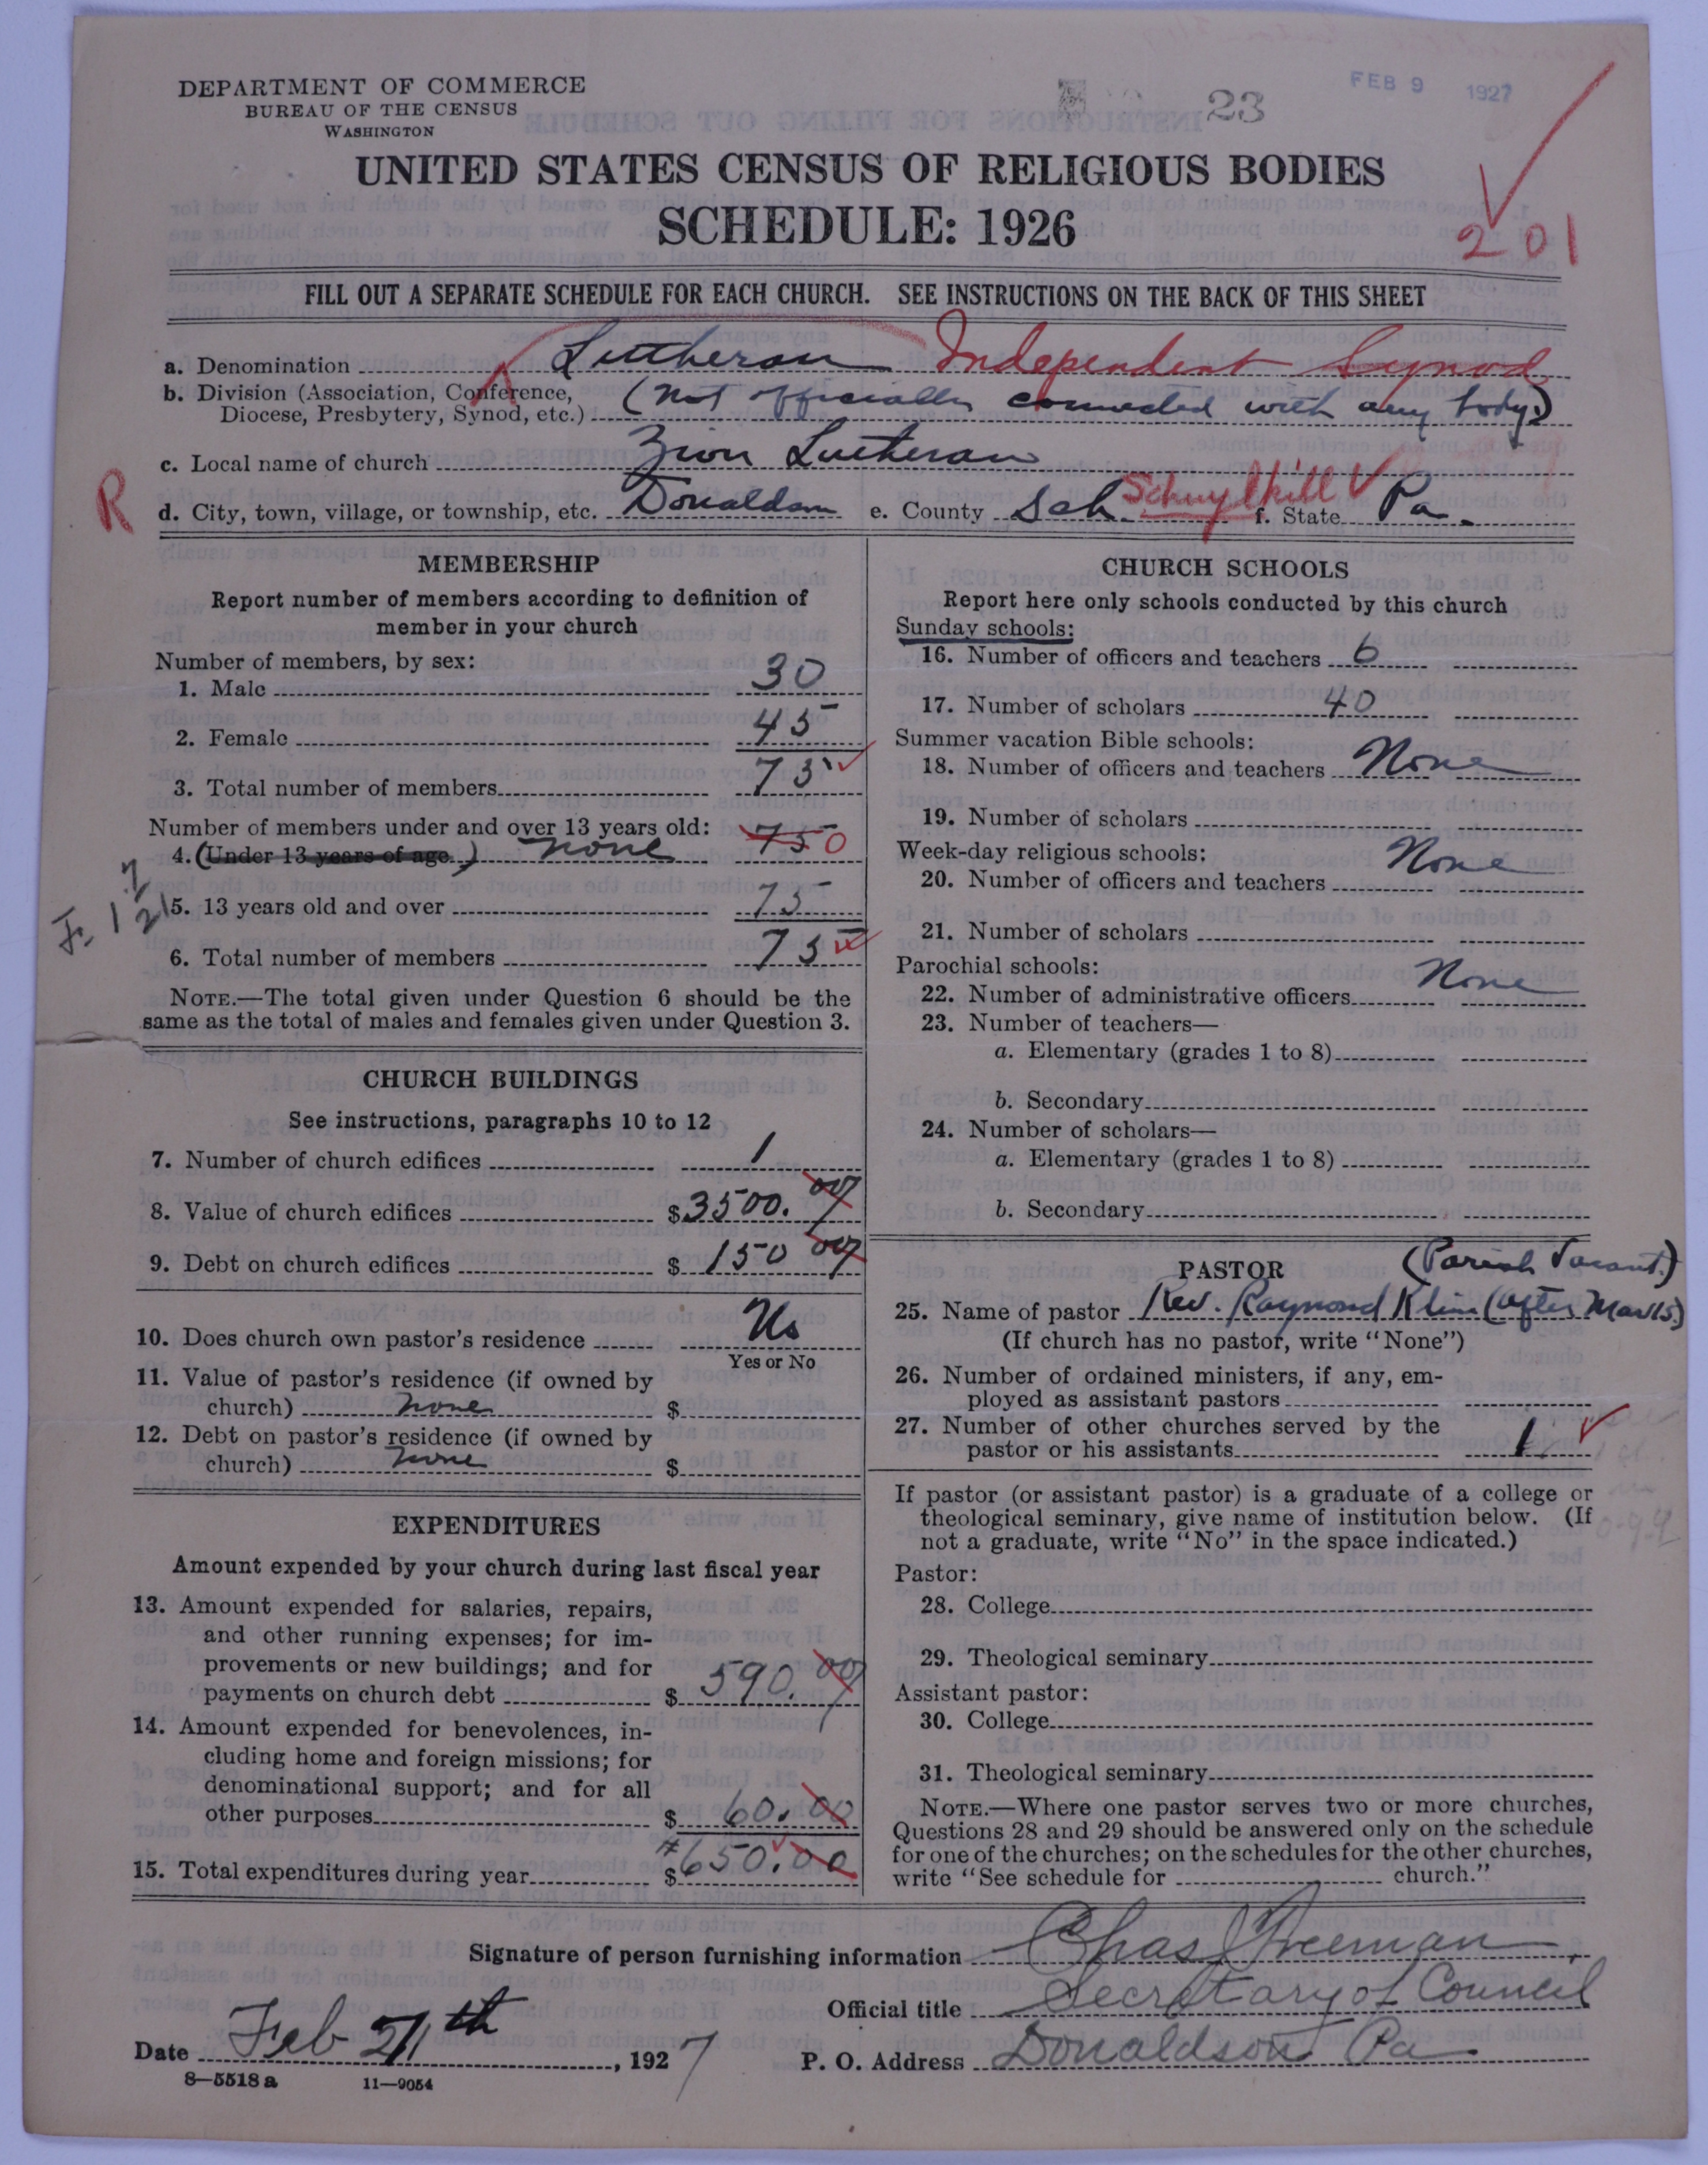 DEPARTMENT OF COMMERCE
BUREAU OF THE CENSUS
WASHINGTON
23
FEB 9 1927
UNITED STATES CENSUS OF RELIGIOUS BODIES
SCHEDULE: 1926
201
FILL OUT A SEPARATE SCHEDULE FOR EACH CHURCH. SEE INSTRUCTIONS ON THE BACK OF THIS SHEET
a. Denomination Lutheran Independent Synod
b. Division (Association, Conference,
Diocese, Presbytery, Synod, etc.) (Not officially connected with any body.)
c. Local name of church Zion Lutheran
R
d. City, town, village, or township, etc. Donaldson e. County Sch. Schuylkill f. State Pa.
MEMBERSHIP
Report number of members according to definition of
member in your church
Number of members, by sex:
1. Male 30
2. Female 45
3. Total number of members 75
Number of members under and over 13 years old:
4. (Under 13 years of age.) none 75 0
5. 13 years old and over 75
6. Total number of members 75
NOTE.—The total given under Question 6 should be the
same as the total of males and females given under Question 3.
CHURCH BUILDINGS
See instructions, paragraphs 10 to 12
7. Number of church edifices 1
8. Value of church edifices $3500.00
9. Debt on church edifices $150 00
10. Does church own pastor's residence No
Yes or No
11. Value of pastor's residence (if owned by
church) none $
12. Debt on pastor's residence (if owned by
church) none $
EXPENDITURES
Amount expended by your church during last fiscal year
13. Amount expended for salaries, repairs,
and other running expenses; for im-
provements or new buildings; and for
payments on church debt $590.00
14. Amount expended for benevolences, in-
cluding home and foreign missions; for
denominational support; and for all
other purposes $60.00
15. Total expenditures during year $650.00
CHURCH SCHOOLS
Report here only schools conducted by this church
Sunday schools:
16. Number of officers and teachers 6
17. Number of scholars 40
Summer vacation Bible schools:
18. Number of officers and teachers None
19. Number of scholars
Week-day religious schools:
20. Number of officers and teachers None
21. Number of scholars
Parochial schools:
22. Number of administrative officers None
23. Number of teachers—
a. Elementary (grades 1 to 8)
b. Secondary
24. Number of scholars—
a. Elementary (grades 1 to 8)
b. Secondary
PASTOR (Parish Vacant.)
25. Name of pastor Rev. Raymond Klim (after Mar 15.)
(If church has no pastor, write "None")
26. Number of ordained ministers, if any, em-
ployed as assistant pastors
27. Number of other churches served by the
pastor or his assistants 1
If pastor (or assistant pastor) is a graduate of a college or
theological seminary, give name of institution below. (If
not a graduate, write "No" in the space indicated.)
Pastor:
28. College
29. Theological seminary
Assistant pastor:
30. College
31. Theological seminary
NOTE.—Where one pastor serves two or more churches,
Questions 28 and 29 should be answered only on the schedule
for one of the churches; on the schedules for the other churches,
write "See schedule for church."
Signature of person furnishing information Chas Freeman
Official title Secretary of Council
Date Feb 21th, 1927 P. O. Address Donaldson Pa
8—5518 a 11—9054